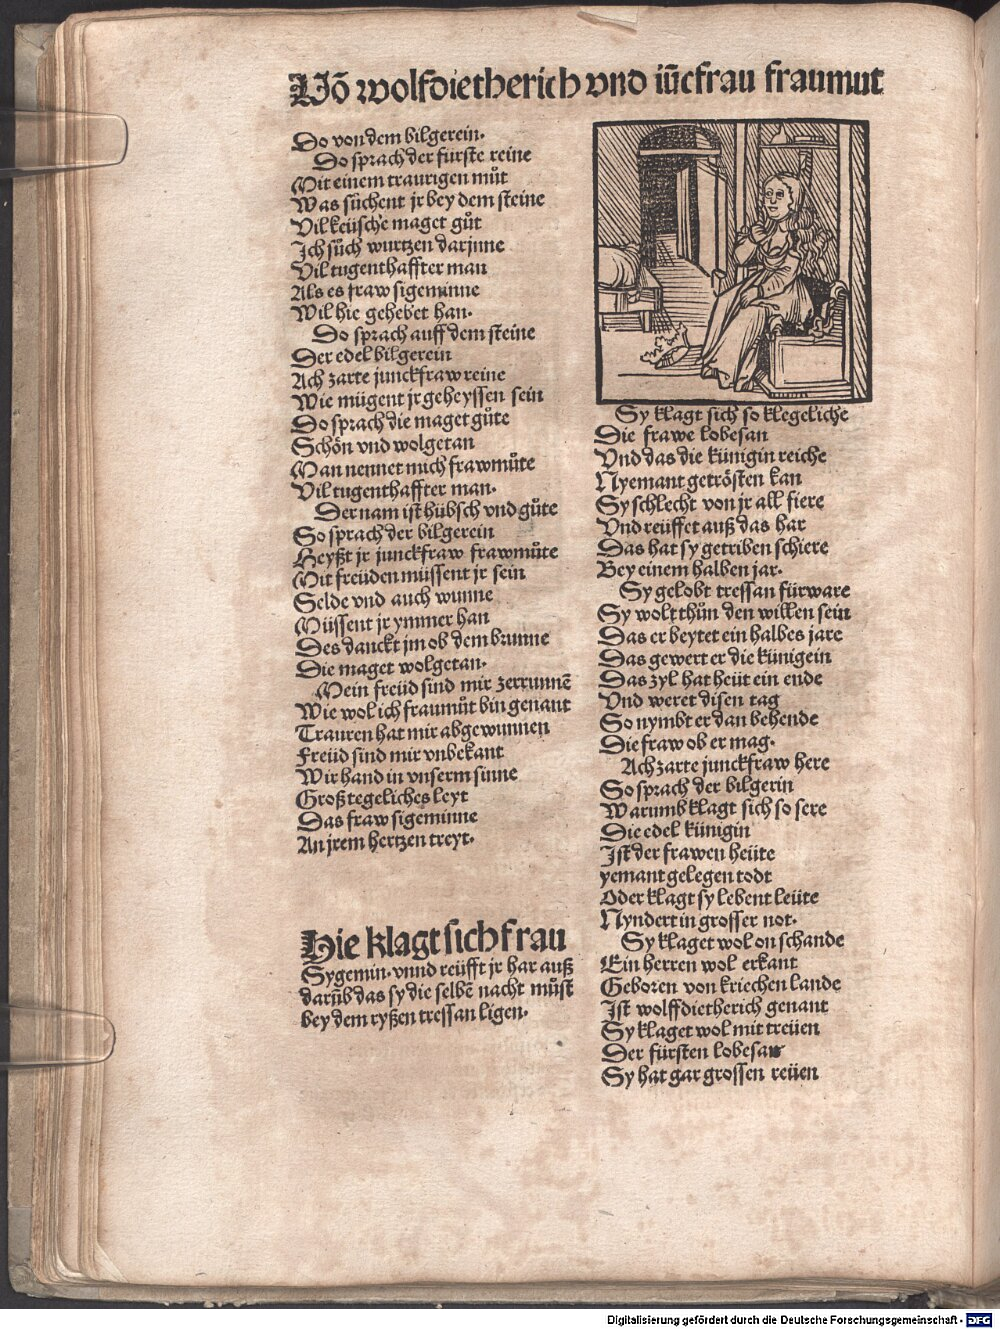 Uõ wolfdietherich vnd iũcfrau fraumut
Do von dem bilgerein.
Do sprach der fürste reine
Mit einem traurigen můt
Was sůchent jr bey dem steine
Vil keüsche maget gůt
Ich sůch wurtzen darjnne
Vil tugenthaffter man
Als es fraw sigeminne
Wil hie gehebet han.
Do sprach auff dem steine
Der edel bilgerein
Ach zarte junckfraw reine
Wie mügent jr geheyssen sein
Do sprach die maget gůte
Schön vnd wolgetan
Man nennet mich frawmůte
Vil tugenthaffter man.
Der nam ist hübsch vnd gůte
So sprach der bilgerein
Heyßt jr junckfraw frawmůte
Mit freüden müssent jr sein
Selde vnd auch wunne
Müssent jr ymmer han
Des danckt jm ob dem brunne
Die maget wolgetan.
Mein freüd sind mir zerrunnẽ
Wie wol ich fraumůt bin genant
Trauren hat mir abgewunnen
Freüd sind mir vnbekant
Wir hand in vnserm sinne
Groß tegeliches leyt
Das fraw sigeminne
An jrem hertzen treyt.
Hie klagt sich frau
Sygemin. vnnd reüfft jr har auß
darũb das sy die selbẽ nacht můst
bey dem ryßen tressan ligen.
Sy klagt sich so klegeliche
Die frawe lobesan
Vnd das die künigin reiche
Nyemant getrösten kan
Sy schlecht von jr all fiere
Vnd reüffet auß das har
Das hat sy getriben schiere
Bey einem halben jar.
Sy gelobt tressan fürware
Sy wolt thůn den willen sein
Das er beytet ein halbes jare
Das gewert er die künigein
Das zyl hat heüt ein ende
Vnd weret disen tag
So nymbt er dan behende
Die fraw ob er mag.
Ach zarte junckfraw here
So sprach der bilgerin
Warumb klagt sich so sere
Die edel künigin
Ist der frawen heüte
yemant gelegen todt
Oder klagt sy lebent leüte
Nyndert in grosser not.
Sy klaget wol on schande
Ein herren wol erkant
Geboren von kriechen lande
Ist wolffdietherich genant
Sy klaget wol mit treüen
Der fürsten lobesan
Sy hat gar grossen reüen
Digitalisierung gefördert durch die Deutsche Forschungsgemeinschaft - DFG